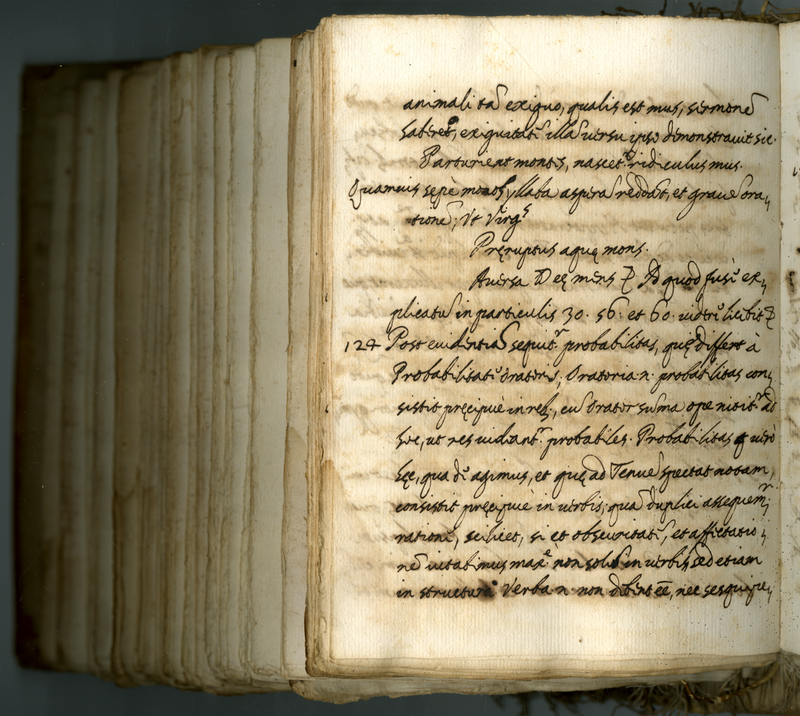 animali tā exiguo, qualis est mus, sermonē
haberet, exiguitatē illā versu ipso demonstravit sic.
Parturient montes, nascetr ridiculus mus.
Quamvis sępè monosyllaba asperā reddāt, et gravē ora,,
tionē; Vt Virgs
Pręruptus aquę mons.
Aversa Deę mens
quod fusiꝰ ex,,
plicatū in particulis 30. 56. et 60. videre licebit
124 Post evidentiā sequitr probabilitas, quę differt à
Probabilitate Oratoris; Oratoria n. probabilitas con,,
sistit pręcipuè in reb., cū Orator sūma ope nititr ad
hoc, ut res videantr probabiles. Probabilitas verò
hęc, qua de agimus, et quę ad Tenuē spectat notam,
consistit pręcipuè in verbis; quā duplici assequemr
ratione, scilicet, si et obscuritatē, et affectatio,,
nē vitabimus maxe non solū in verbis sed etiam
in structura Verba n. non debent eē, nec sesquipe,,